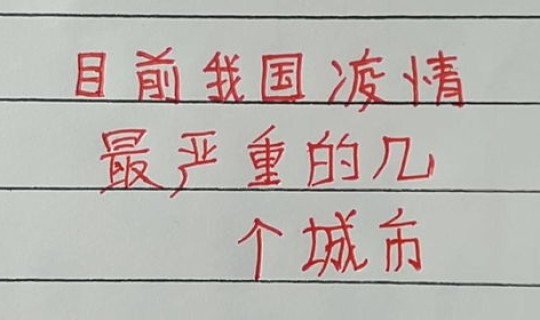 目前我国凌情
最严重的几
个城市